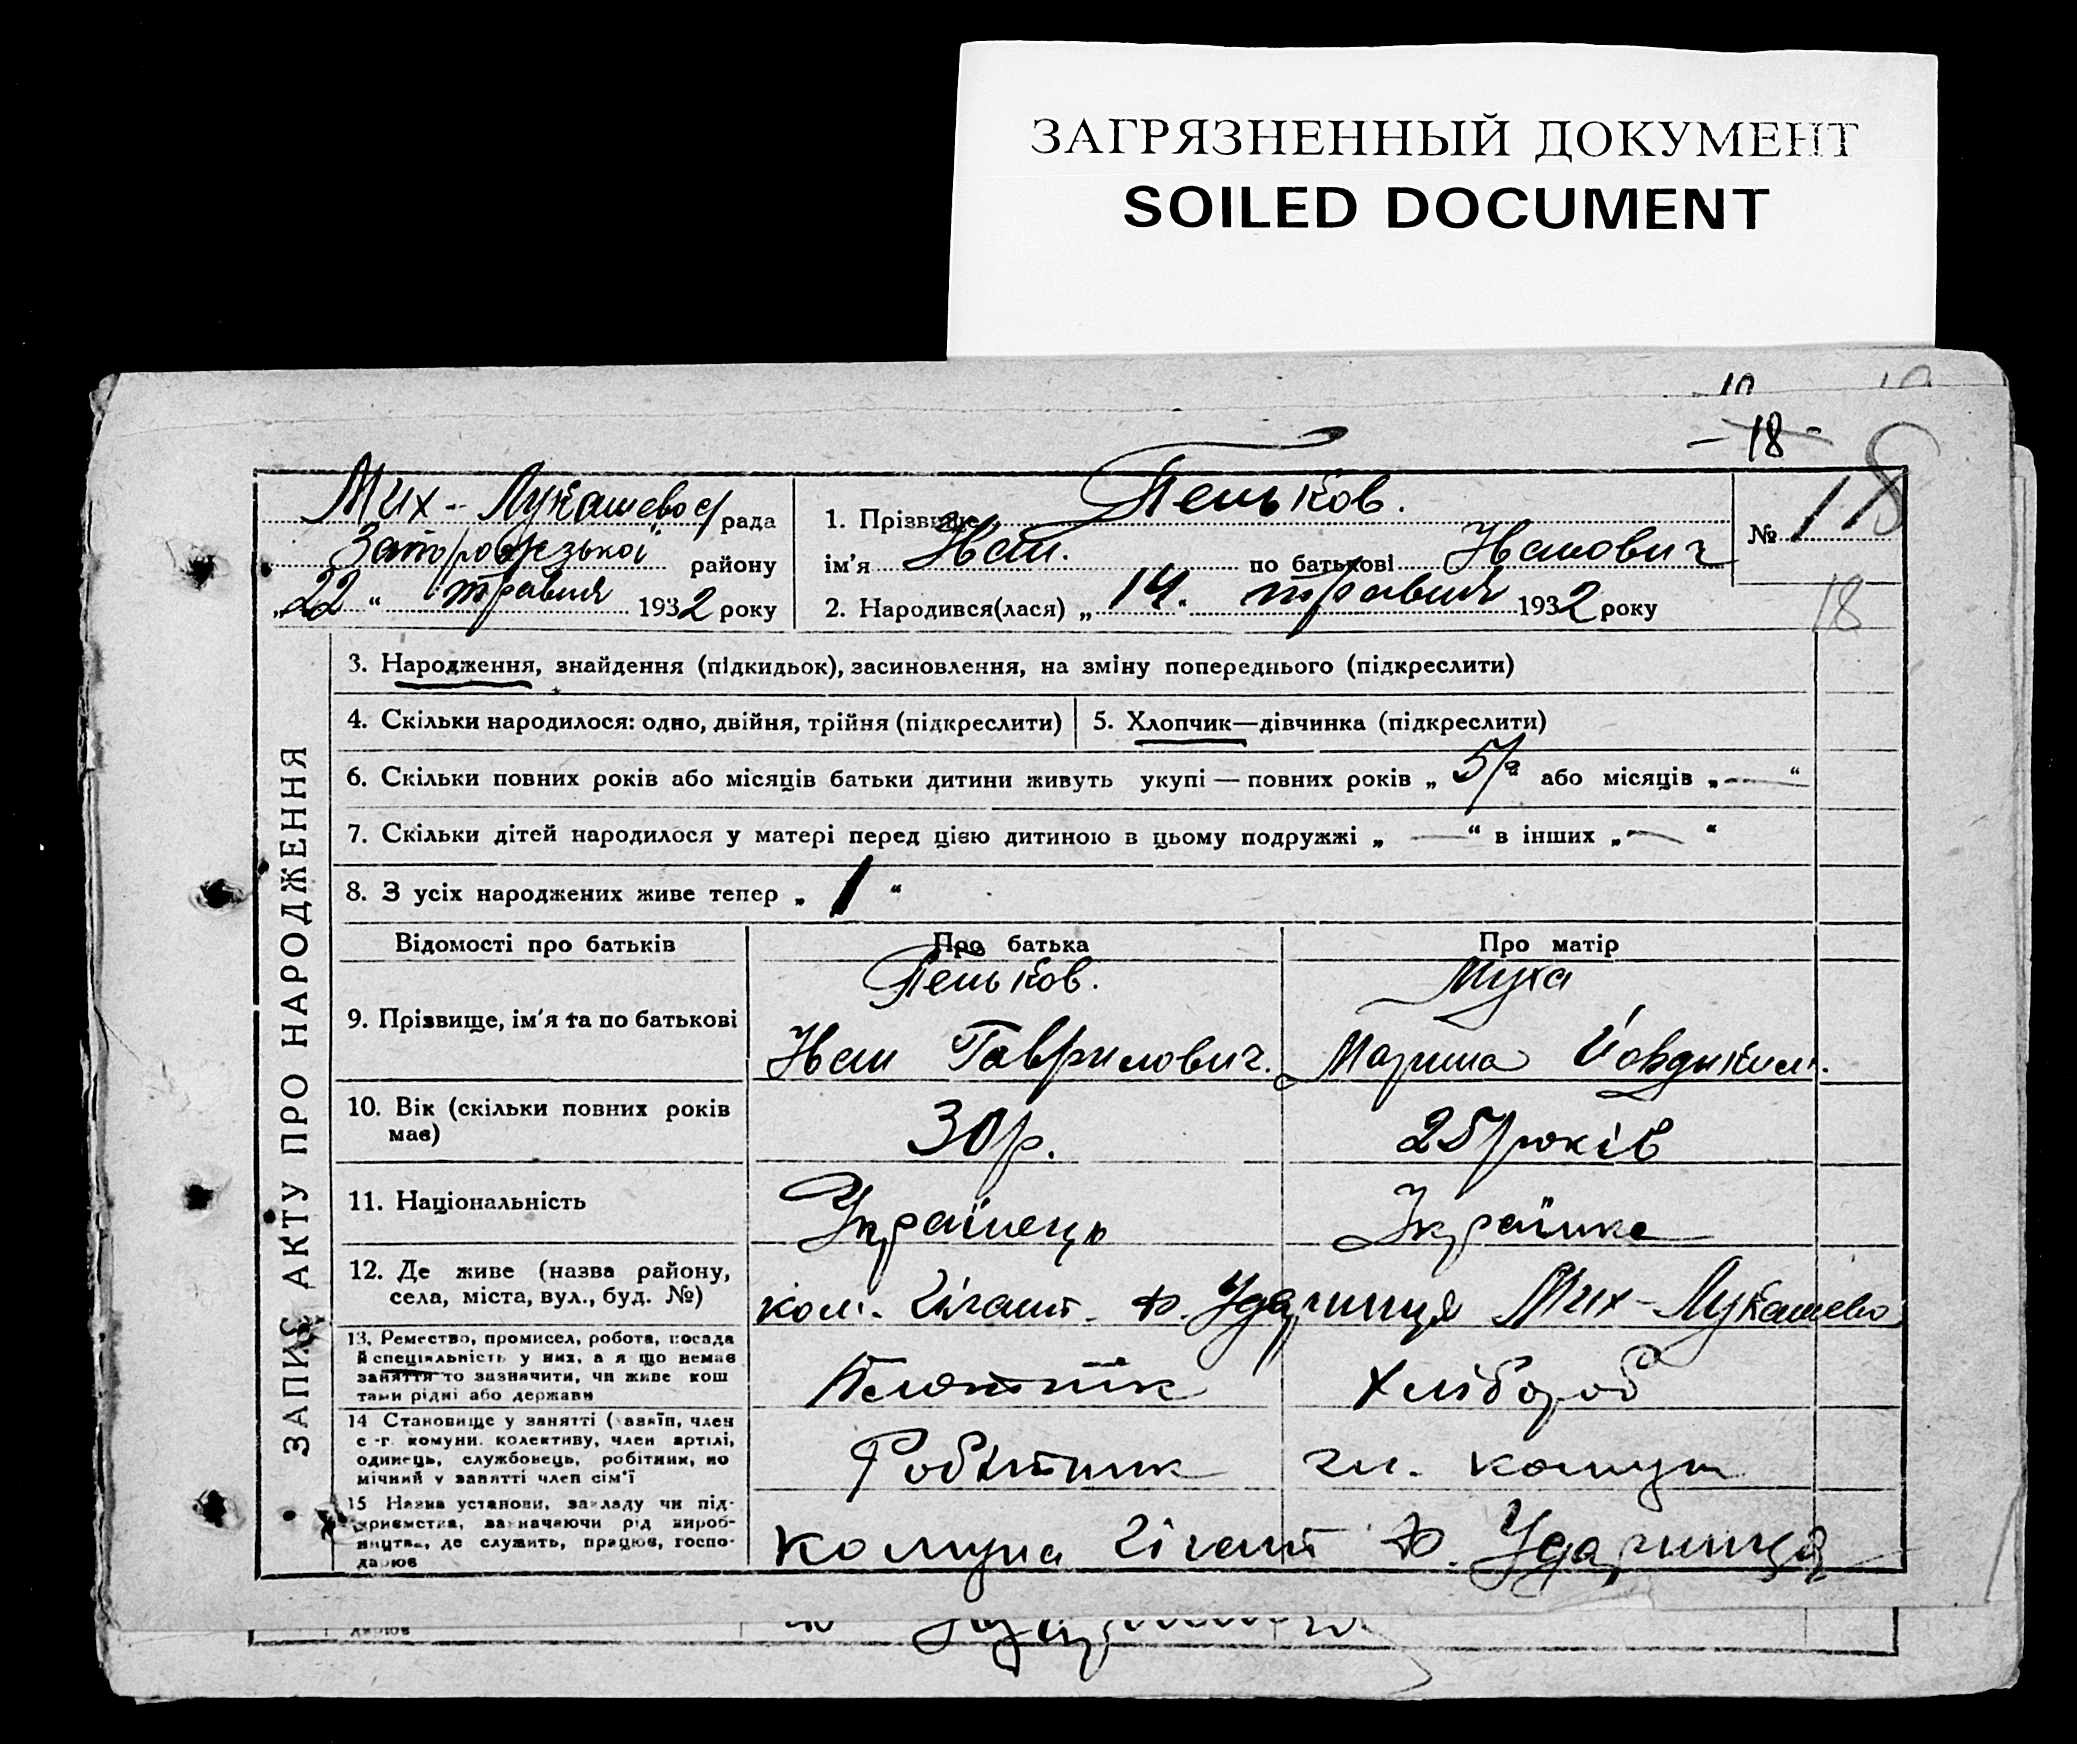 ЗАГРЯЗНЕННЫЙ ДОКУМЕНТ
SOILED DOCUMENT
- 18 -
Мих-Лукашево с/рада
Запорозької району
„22“ травня 1932 року
1. Прізвище Пеньков.
ім'я Іван. по батькові Іванович
2. Народився(лася) „14“ травня 1932 року
№ 18
18
ЗАПИС АКТУ ПРО НАРОДЖЕННЯ
3. Народження, знайдення (підкидьок), засиновлення, на зміну попереднього (підкреслити)
4. Скільки народилося: одно, двійня, трійня (підкреслити)
5. Хлопчик—дівчинка (підкреслити)
6. Скільки повних років або місяців батьки дитини живуть укупі — повних років „ 5 або місяців „ — “
7. Скільки дітей народилося у матері перед цією дитиною в цьому подружжі „ — “ в інших „ — “
8. З усіх народжених живе тепер „ 1 “
Відомості про батьків
Про батька
Про матір
9. Прізвище, ім'я та по батькові
Пеньков.
Іван Гаврилович.
Муха
Марина
10. Вік (скільки повних років
має)
30 р.
25 років
11. Національність
Українець
Українка
12. Де живе (назва району,
села, міста, вул., буд. №)
ком. Гігант. Ударниця Мих-Лукашево
13. Ремество, промисел, робота, посада
й спеціяльність у них, а я що немає
заняття то зазначити, чи живе кош
тами рідні або держави
Плотнік
хлібороб
14 Становище у занятті (хазяїн, член
с -г. комуни. колективу, член артілі,
одинець, службовець, робітник, по
мічний у занятті член сім'ї
Робітник
чл. комун
15 Назва установи, закладу чи під-
приємства, зазначаючи рід вироб-
ництва, де служить, працює, госпо-
дарює
комуна Гігант Ударниця